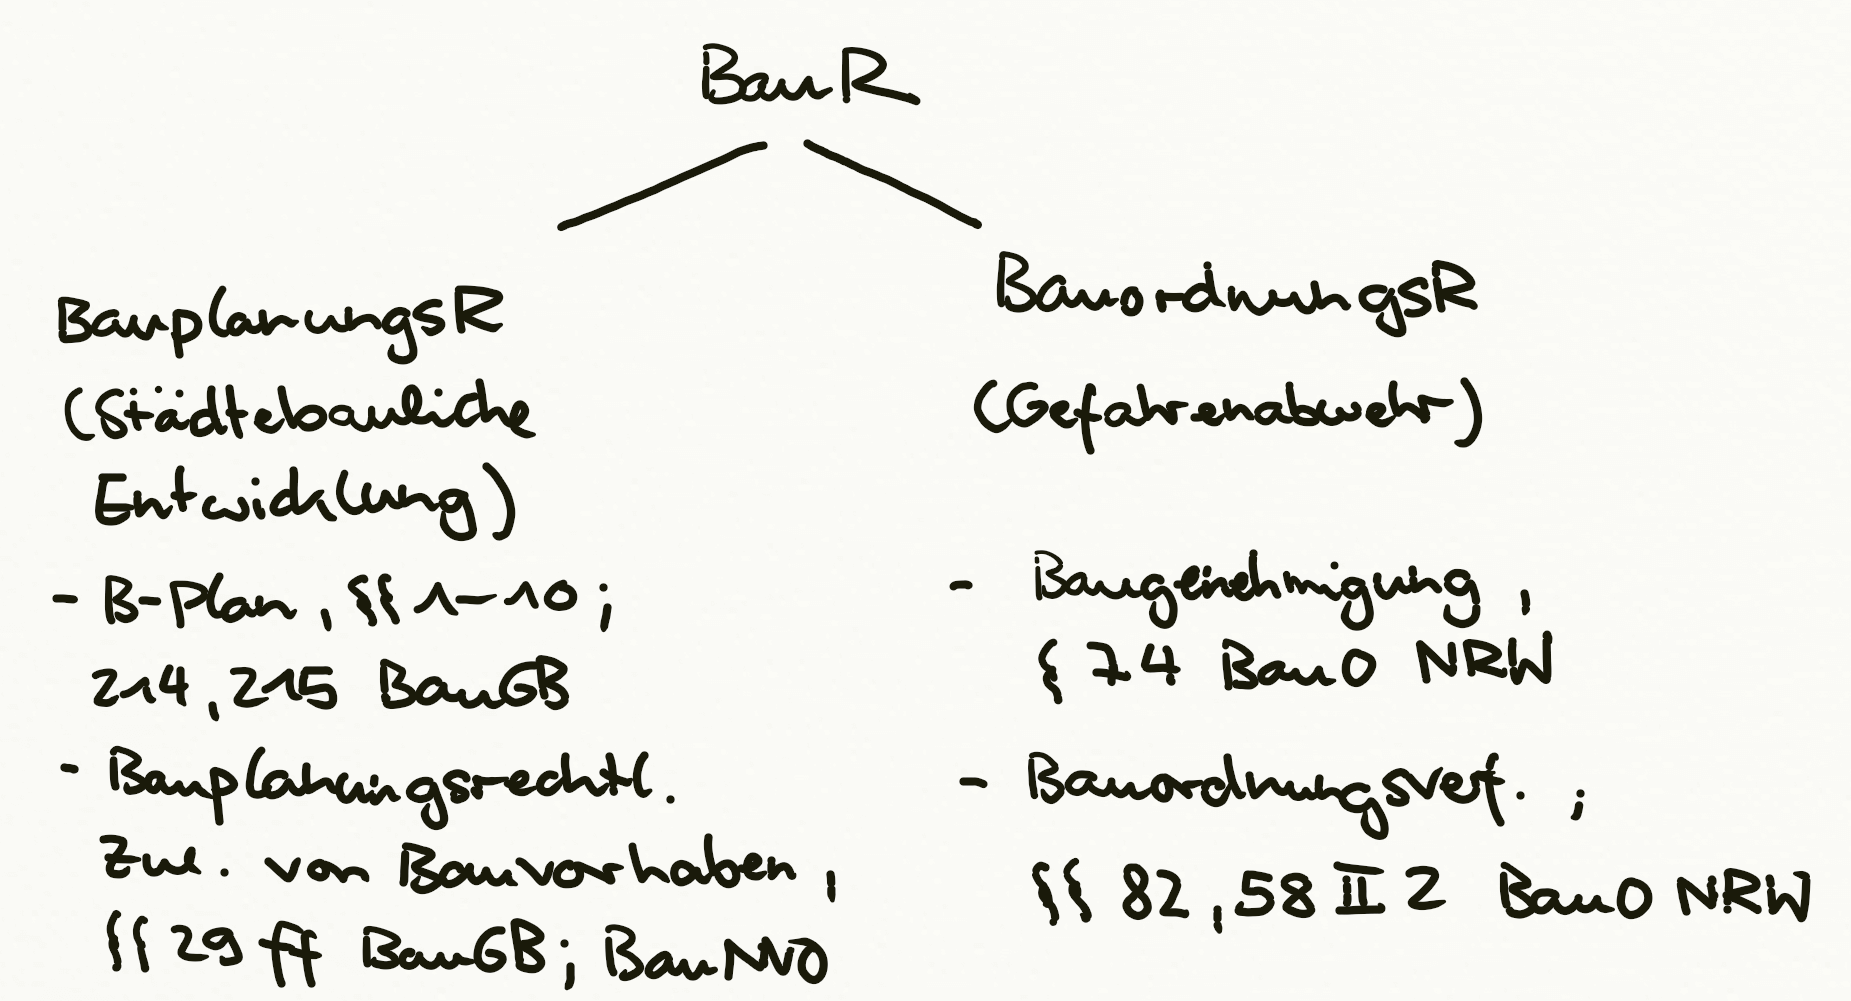 BauR
BauplanungsR
(Städtebauliche
Entwicklung)
- B-Plan, §§ 1-10;
214, 215 BauGB
- Bauplanungsrechtl.
Zul. von Bauvorhaben,
§§ 29 ff BauGB; BauNVO
BauordnungsR
(Gefahrenabwehr)
- Baugenehmigung,
§ 74 BauO NRW
- Bauordnungsverf.;
§§ 82, 58 II 2 BauO NRW